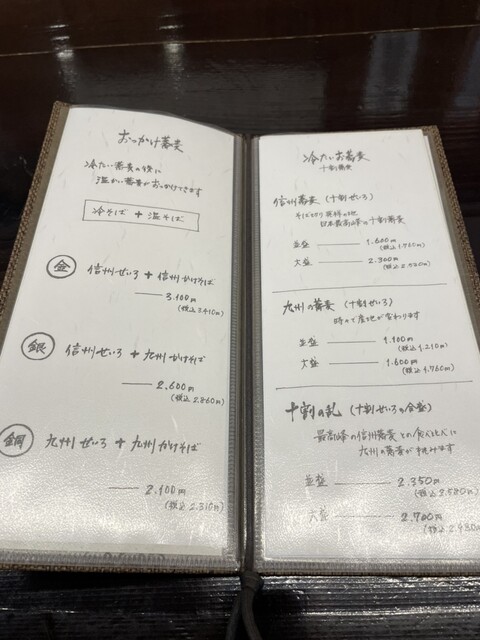 おっかけ蕎麦
冷たい蕎麦の後に
温かい蕎麦がおっかけてきます
冷そば + 温そば
金 信州せいろ + 信州かけそば
3.100円
(税込3.410円)
銀 信州せいろ + 九州かけそば
2.600円
(税込2.860円)
銅 九州せいろ + 九州かけそば
2.100円
(税込2.310円)
冷たいお蕎麦
十割蕎麦
信州蕎麦 (十割せいろ)
そば切り発祥の地
日本最高峰の十割蕎麦
並盛 1.600円
(税込1.760円)
大盛 2.300円
(税込2.530円)
九州の蕎麦 (十割せいろ)
時々で産地が変わります
並盛 1.100円
(税込1.210円)
大盛 1.600円
(税込1.760円)
十割の乱 (十割せいろの合盛)
最高峰の信州蕎麦との食べ比べに
九州の蕎麦が挑みます
並盛 2.350円
(税込2.580円)
大盛 2.700円
(税込2.980円